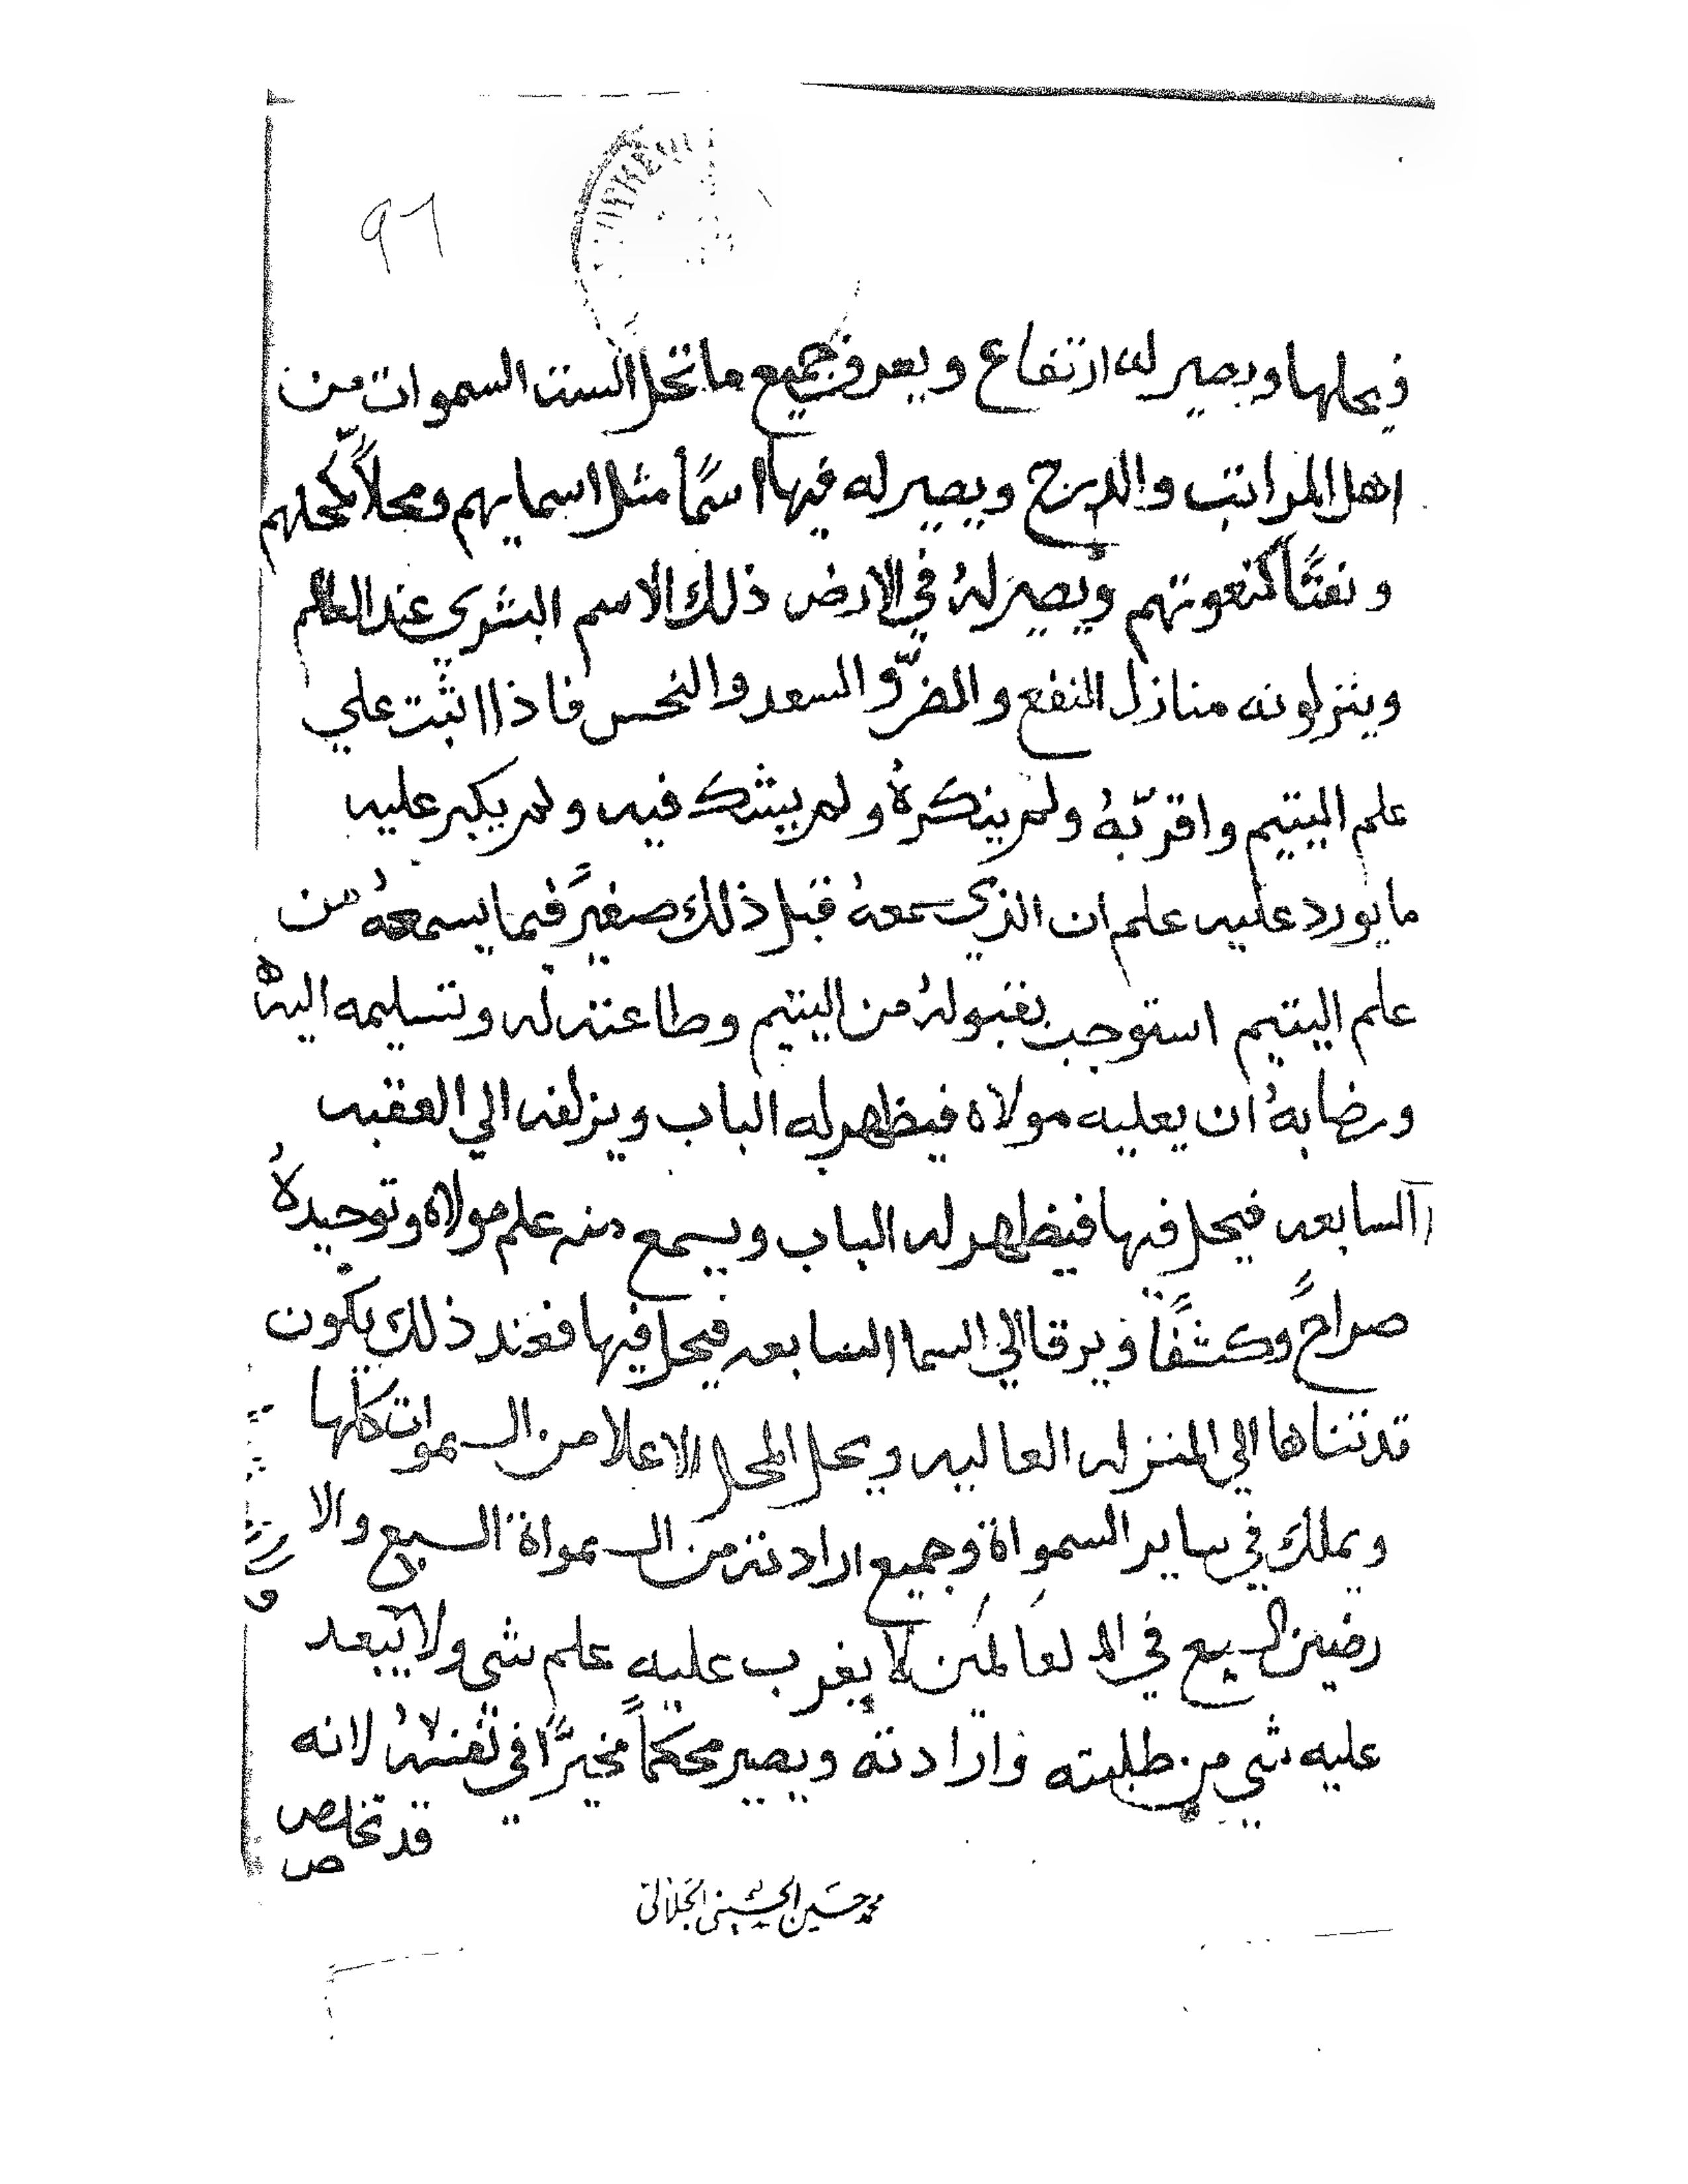 ٩٦
فيحلها ويصير له ارتفاع ويعرف جميع ما تحل الست السموات من
اهل المراتب والدرج ويصير له فيها اسمًا مثل اسمايهم ومحلاً كمحلهم
ونعتًا كنعوتهم ويصير لهُ في الارض ذلك الاسم البشري عند العالم
وينزلونه منازل النفع والضرّ والسعد والنحس فاذا اثبت علي
علم اليتيم واقرّ بهُ ولم ينكرهُ ولم يشك فيه ولم يكبر عليه
ما يورد عليه علم ان الذي سمعهُ قبل ذلك صغيرً فيما يسمعهُ من
علم اليتيم استوجب بقبولهُ من اليتيم وطاعته له وتسليمه اليه
ورضا بهُ ان يعليه مولاه فيظهر له الباب ويزلفه الي العقبه
السابعه فيحل فيها فيظهر له الباب ويسمع منه علم مولاه وتوحيدهُ
صراحً وكشفًا ويرقا الي السما السابعه فيحل فيها فعند ذلك يكون
قد تناها الي المنزله العاليه ويحل المحل الاعلا من السموات كلها
ويملك في ساير السمواة وجميع ارادته من السمواة السبع والا
رضين السبع في العالمين لا يغرب عليه علم شي ولا يبعد
عليه شي من طلبته وارادته ويصير محكماً مخيرًا في نفسهُ لانه
قد تخلص
محمد حسين الحسيني الجلالي